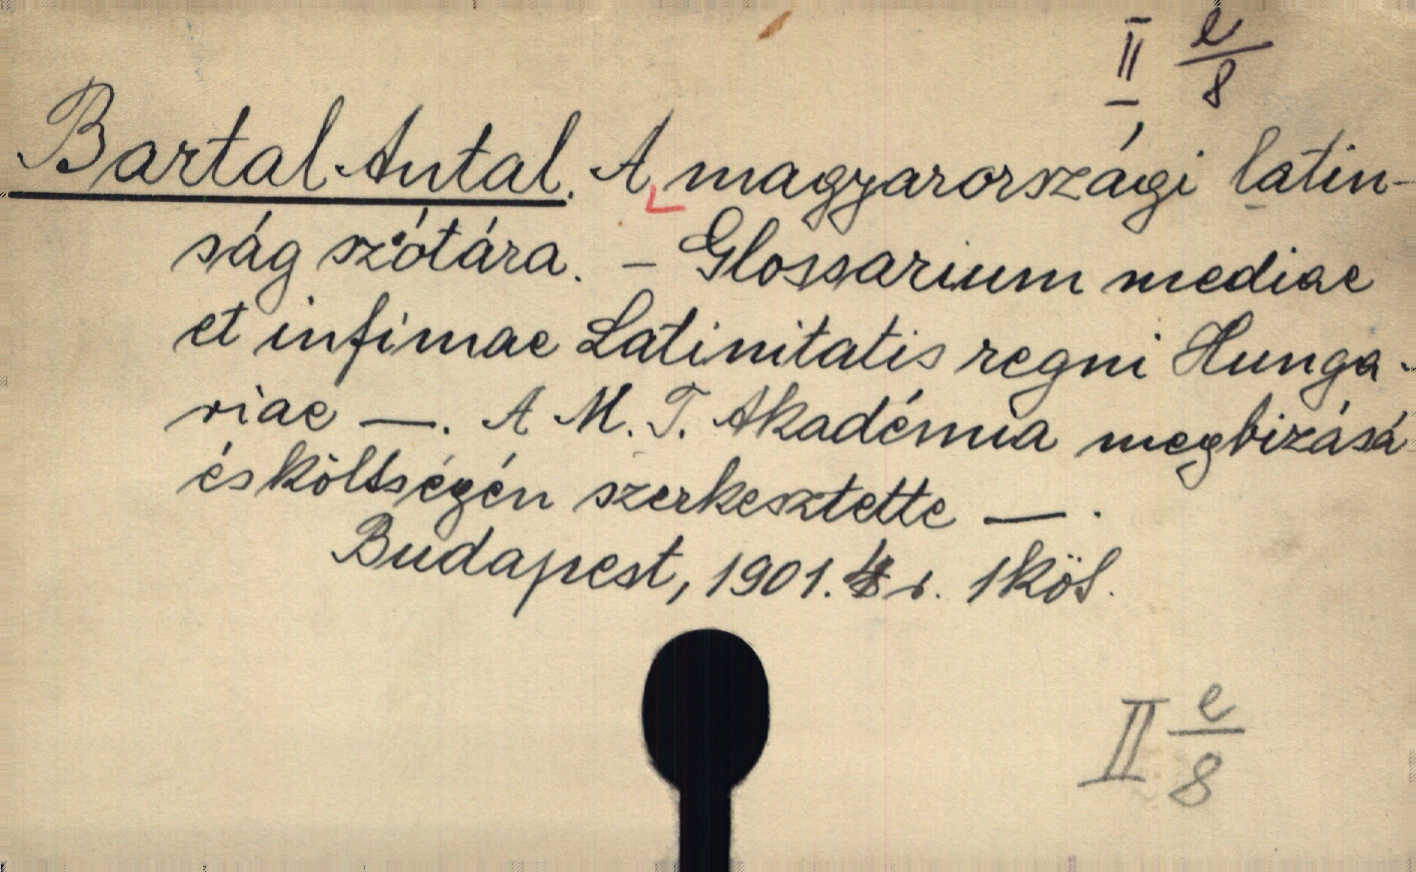 II e/8
Bartal Antal. A magyarországi latin-
ság szótára. – Glossarium mediae
et infimae Latinitatis regni Hunga-
riae —. A M. T. Akadémia megbizásá
és költségén szerkesztette —.
Budapest, 1901. 4 r. 1 köt.
II e/8